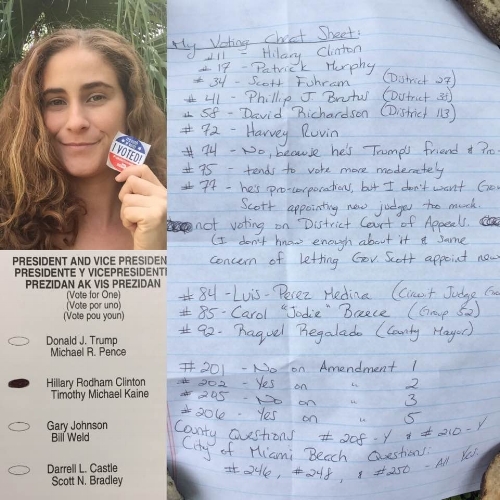 I VOTED!
PRESIDENT AND VICE PRESIDEN
PRESIDENTE Y VICEPRESIDENT
PREZIDAN AK VIS PREZIDAN
(Vote for One)
(Vote por uno)
(Vote pou youn)
Donald J. Trump
Michael R. Pence
Hillary Rodham Clinton
Timothy Michael Kaine
Gary Johnson
Bill Weld
Darrell L. Castle
Scott N. Bradley
My Voting Cheat Sheet:
#11 - Hilary Clinton
#17 - Patrick Murphy
#34 - Scott Fuhram (District 27)
#41 - Phillip J Brutus (District 38)
#58 - David Richardson (District 113)
#72 - Harvey Ruvin
#74 - No, because he's Trump's friend & Pro-
#75 - tends to vote more moderately
#77 - he's pro-corporations, but I don't want Gov
Scott appointing new judges too much.
not voting on District Court of Appeals.
(I don't know enough about it & same
concern of letting Gov. Scott appoint new
#84 - Luis Perez Medina (Circuit Judge
#85 - Carol "Jodie" Breece (Group 52)
#92 - Raquel Regalado (County Mayor)
#201 - No on Amendment 1
#202 - Yes on " 2
#205 - No on " 3
#206 - Yes on " 5
County Questions #208 - Y & #210 - Y
City of Miami Beach Questions:
#246, #248, & #250 - All Yes.